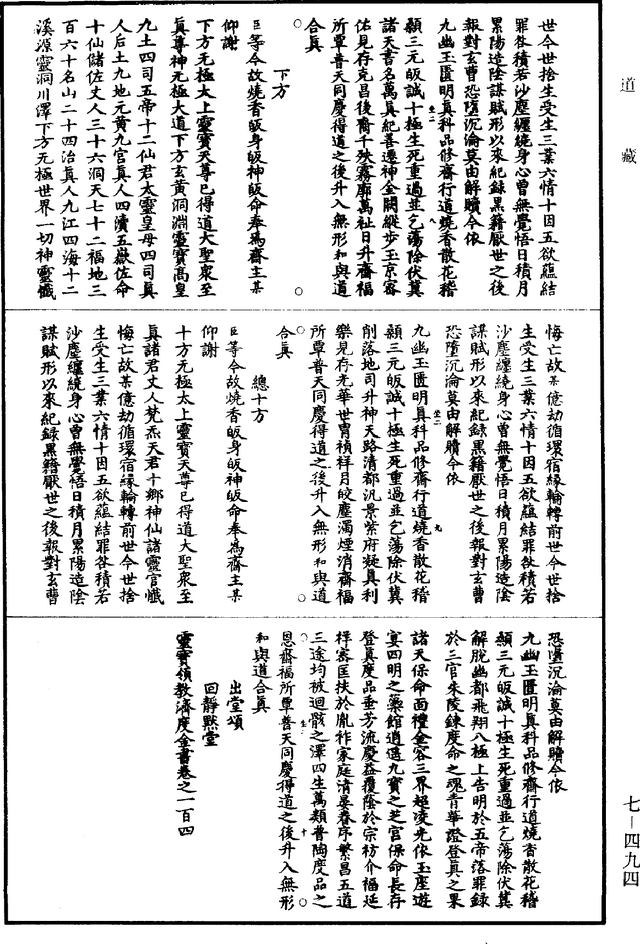 道藏
世今世捨生受生三業六情十因五欲蘊結
罪咎積若沙塵纏繞身心曾無覺悟日積月
累陽造陰謀賊形以來紀錄黑籍厭世之後
報對玄曹恐墮沉淪莫由解贖今依
九幽玉匱明真科品修齋行道燒香散花稽
顙三元皈誠十極生死重過並乞蕩除伏冀
諸天書名萬真紀善遷神金闕縱步玉京睿
佑見存克昌後裔千殃霧廓萬祉日升齋福
所覃普天同慶得道之後升入無形和與道
合真
下方
臣等今故燒香皈身皈神皈命奉為齋主某
仰謝
下方無極太上靈寶天尊已得道大聖眾至
真尊神無極大道下方玄黃洞淵靈寶高皇
九土四司五帝十二仙君太靈皇母四司真
人后土九地元黃九宮真人四瀆五嶽佐命
十仙儲佐丈人三十六洞天七十二福地三
百六十名山二十四治真人九江四海十二
溪源靈洞川澤下方無極世界一切神靈懺
悔亡故某億劫循環宿緣輪轉前世今世捨
生受生三業六情十因五欲蘊結罪咎積若
沙塵纏繞身心曾無覺悟日積月累陽造陰
謀賊形以來紀錄黑籍厭世之後報對玄曹
恐墮沉淪莫由解贖今依
九幽玉匱明真科品修齋行道燒香散花稽
顙三元皈誠十極生死重過並乞蕩除伏冀
削落地司升神天路清都汎景紫府凝真利
樂見存光華世冑禎祥月皎塵濁煙消齋福
所覃普天同慶得道之後升入無形和與道
合真
總十方
臣等今故燒香皈身皈神皈命奉為齋主某
仰謝
十方無極太上靈寶天尊已得道大聖眾至
真諸君丈人梵炁天君十鄉神仙諸靈官懺
悔亡故某億劫循環宿緣輪轉前世今世捨
生受生三業六情十因五欲蘊結罪咎積若
沙塵纏繞身心曾無覺悟日積月累陽造陰
謀賊形以來紀錄黑籍厭世之後報對玄曹
恐墮沉淪莫由解贖今依
九幽玉匱明真科品修齋行道燒香散花稽
顙三元皈誠十極生死重過並乞蕩除伏冀
解脫幽都飛翔八極上告明於五帝落罪錄
於三官朱陵鍊度命之魂青華證登真之果
諸天保命面禮金容三界超淩光依玉座遊
宴四明之藥館逍遙九寶之芝宮保命長存
登真度品垂芳流慶益覆蔭於宗枋介福延
祥睿匡扶於胤祚家庭清晏眷序繁昌五道
三途均被迴骸之澤四生萬類普陶度品之
恩齋福所覃普天同慶得道之後升入無形
和與道合真
出堂頌
回靜默堂
靈寶領教濟度金書卷之一百四
七—四九四